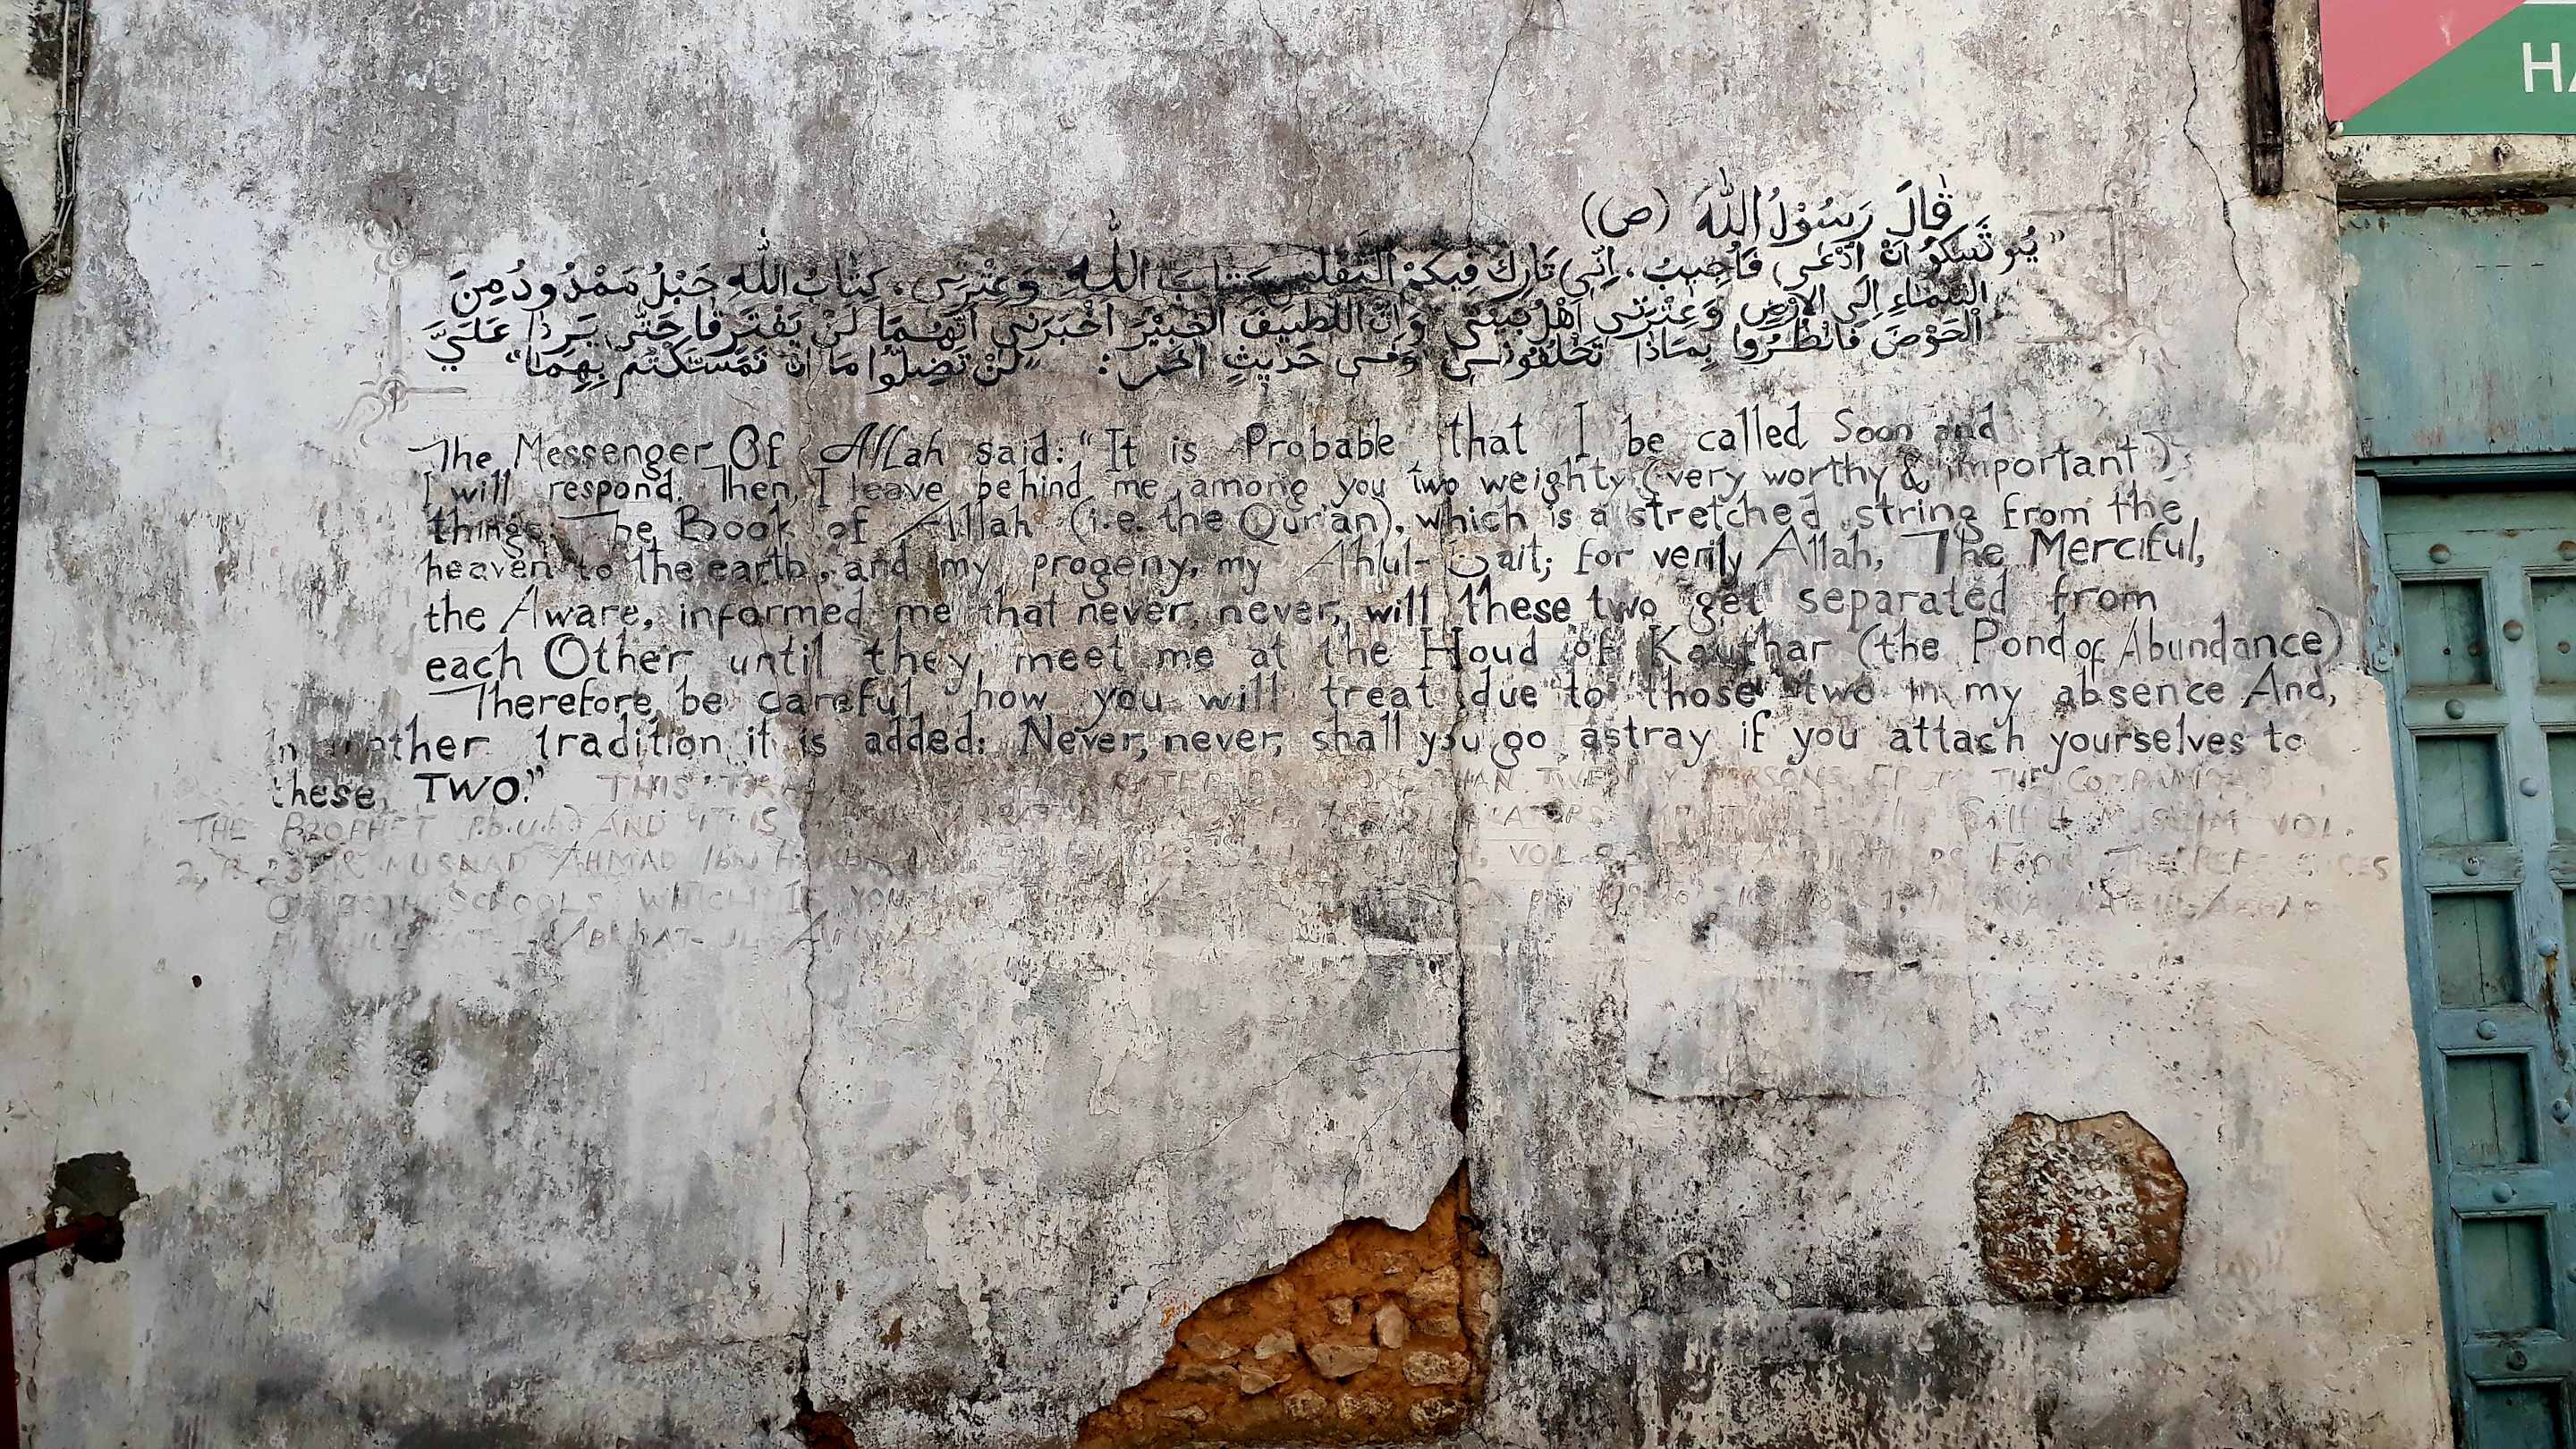 قَالَ رَسُوْلُ اللّٰه (ص)
"يُوْشَكُ اَنْ اُدْعٰى فَاُجِيبُ، اِنِّي تَارِكٌ فِيكُمُ الثَّقَلَيْنِ كِتَابَ اللّٰهِ وَعِتْرَتِي، كِتَابُ اللّٰهِ حَبْلٌ مَمْدُودٌ مِنَ
السَّمَاءِ اِلَى الاَرْضِ وَعِتْرَتِي اَهْلُ بَيْتِي وَاِنَّ اللَّطِيفَ الخَبِيْرَ اَخْبَرَنِي اَنَّهُمَا لَنْ يَفْتَرِقَا حَتّٰى يَرِدَا عَلَيَّ
الْحَوْضَ فَانْظُرُوا بِمَاذَا تَخْلُفُونِي وَفِي حَدِيثٍ آخَر: "لَنْ تَضِلُّوا مَا اِنْ تَمَسَّكْتُمْ بِهِمَا"
The Messenger Of Allah said: "It is Probable that I be called Soon and
I will respond. Then, I leave behind me among you two weighty (very worthy & important)
things: The Book of Allah (i.e. the Qur'an), which is a stretched string from the
heaven to the earth, and my progeny, my Ahlul-Bait; for verily Allah, The Merciful,
the Aware, informed me that never, never, will these two get separated from
each Other until they meet me at the Houd of Kauthar (the Pond of Abundance)
Therefore, be careful how you will treat due to those two in my absence And,
In another tradition it is added: Never, never, shall you go astray if you attach yourselves to
these TWO." THIS MORE THAN TWENTY PERSONS FROM THE
THE PROPHET P.b.u.h AND IT IS MUSLIM VOL.
2, MUSNAD AHMAD IBN VOL.
OF BOTH SCHOOLS WHICH IF YOU
HA